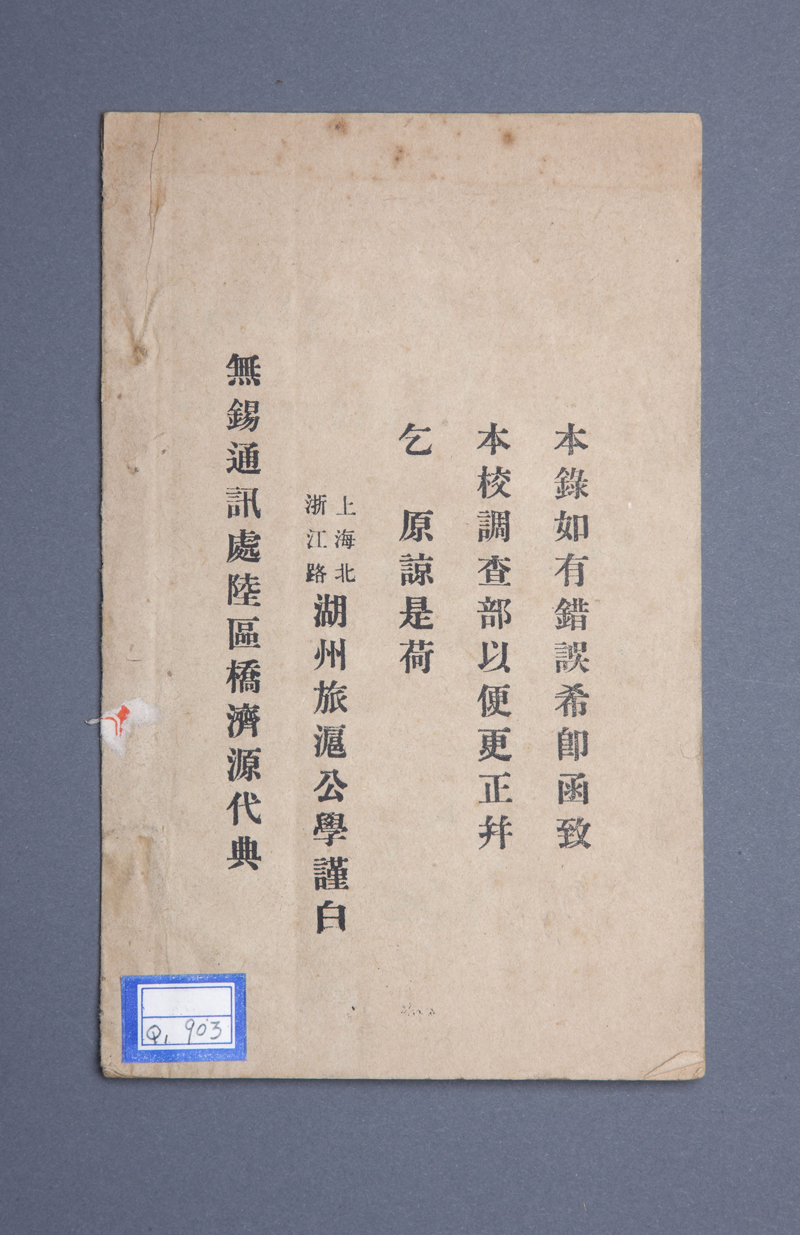 本錄如有錯誤希卽函致
本校調查部以便更正幷
乞　原諒是荷
上海北
浙江路
湖州旅滬公學謹白
無錫通訊處陸區橋濟源代典
Q, 903